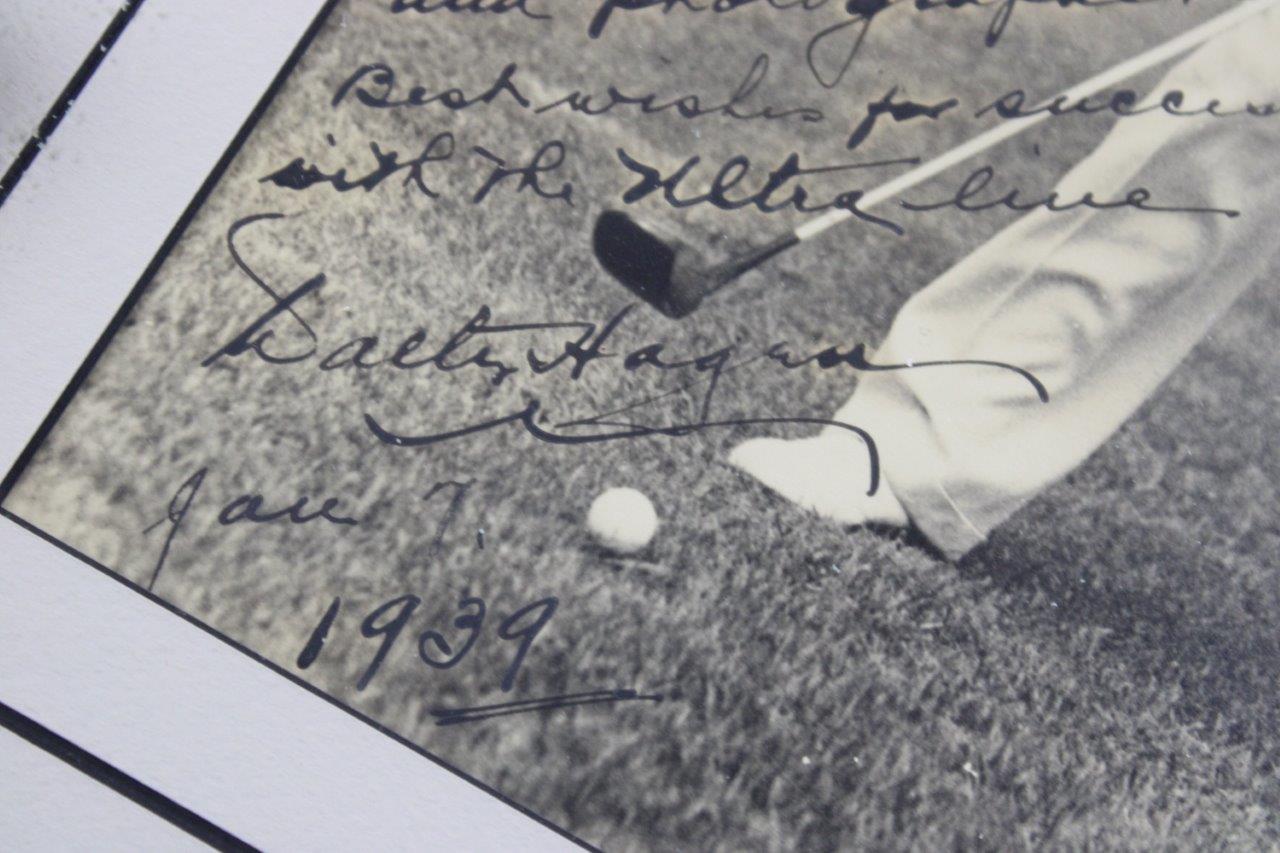 and photographer
Best wishes for success
with the Ultra line
Walter Hagen
Jan 7.
1939